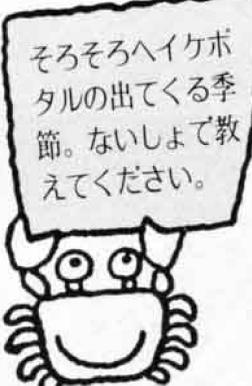 そろそろヘイケボ
タルの出てくる季
節。ないしょで教
えてください。